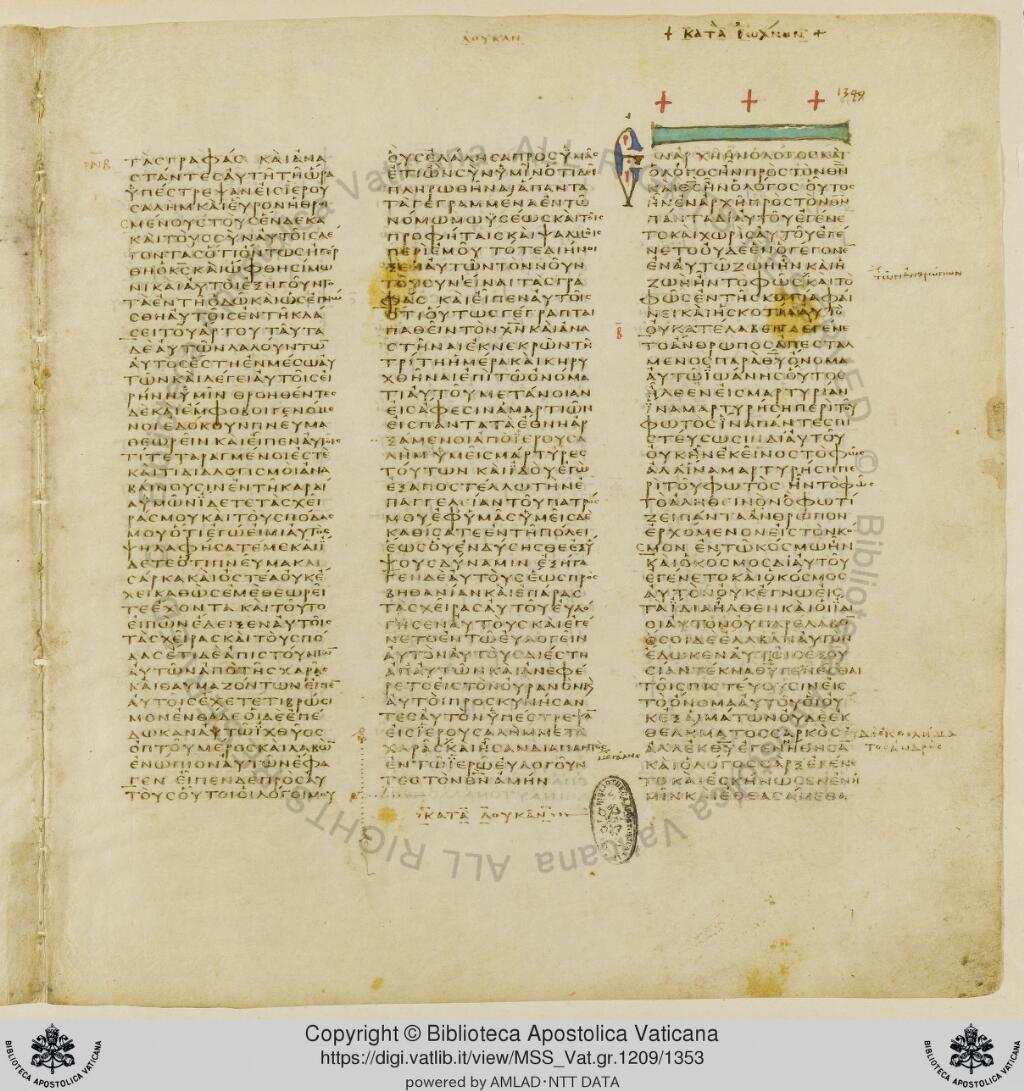 ΛΟΥΚΑΝ
+ ΚΑΤΑ ΙΩΑΝΝΗΝ +
1349
ΤΑϹΓΡΑΦΑϹ ΚΑΙΑΝΑ
ϹΤΑΝΤΕϹΑΥΤΗΤΗΩΡΑ
ΥΠΕϹΤΡΕΨΑΝΕΙϹΙΕΡΟΥ
ϹΑΛΗΜΚΑΙΕΥΡΟΝΗΘΡΟΙ
ϹΜΕΝΟΥϹΤΟΥϹΕΝΔΕΚΑ
ΚΑΙΤΟΥϹϹΥΝΑΥΤΟΙϹΛΕ
ΓΟΝΤΑϹΟΤΙΟΝΤΩϹΗΓΕΡ
ΘΗΟΚ̅Ϲ̅ΚΑΙΩΦΘΗϹΙΜΩ
ΝΙΚΑΙΑΥΤΟΙΕΞΗΓΟΥΝΤΟ
ΤΑΕΝΤΗΟΔΩΚΑΙΩϹΕΓΝΩ
ϹΘΗΑΥΤΟΙϹΕΝΤΗΚΛΑ
ϹΕΙΤΟΥΑΡΤΟΥΤΑΥΤΑ
ΔΕΑΥΤΩΝΛΑΛΟΥΝΤΩ̅
ΑΥΤΟϹΕϹΤΗΕΝΜΕϹΩΑΥ
ΤΩΝΚΑΙΛΕΓΕΙΑΥΤΟΙϹΕΙ
ΡΗΝΗΥΜΙΝ ΘΡΟΗΘΕΝΤΕϹ
ΔΕΚΑΙΕΜΦΟΒΟΙΓΕΝΟΜΕ
ΝΟΙΕΔΟΚΟΥΝΠΝΕΥΜΑ
ΘΕΩΡΕΙΝ ΚΑΙΕΙΠΕΝΑΥΤΟΙϹ
ΤΙΤΕΤΑΡΑΓΜΕΝΟΙΕϹΤΕ
ΚΑΙΤΙΔΙΑΛΟΓΙϹΜΟΙΑΝΑ
ΒΑΙΝΟΥϹΙΝΕΝΤΗΚΑΡΔΙΑ
ΑΥΜΩΝΙΔΕΤΕΤΑϹΧΕΙ
ΡΑϹΜΟΥΚΑΙΤΟΥϹΠΟΔΑϹ
ΜΟΥΟΤΙΕΓΩΕΙΜΙΑΥΤΟϹ
ΨΗΛΑΦΗϹΑΤΕΜΕΚΑΙΙ
ΔΕΤΕΟΤΙΠΝΕΥΜΑΚΑΙ
ϹΑΡΚΑΚΑΙΟϹΤΕΑΟΥΚΕ
ΧΕΙΚΑΘΩϹΕΜΕΘΕΩΡΕΙ
ΤΕΕΧΟΝΤΑ ΚΑΙΤΟΥΤΟ
ΕΙΠΩΝΕΔΕΙΞΕΝΑΥΤΟΙϹ
ΤΑϹΧΕΙΡΑϹΚΑΙΤΟΥϹΠΟ
ΔΑϹΕΤΙΔΕΑΠΙϹΤΟΥΝΤΩΝ
ΑΥΤΩΝΑΠΟΤΗϹΧΑΡΑϹ
ΚΑΙΘΑΥΜΑΖΟΝΤΩΝΕΙΠΕ
ΑΥΤΟΙϹΕΧΕΤΕΤΙΒΡΩϹΙ
ΜΟΝΕΝΘΑΔΕΟΙΔΕΕΠΕ
ΔΩΚΑΝΑΥΤΩΙΧΘΥΟϹ
ΟΠΤΟΥΜΕΡΟϹΚΑΙΛΑΒΩ̅
ΕΝΩΠΙΟΝΑΥΤΩΝΕΦΑ
ΓΕΝ ΕΙΠΕΝΔΕΠΡΟϹΑΥ
ΤΟΥϹΟΥΤΟΙΟΙΛΟΓΟΙΜΟΥ
ΟΥϹΕΛΑΛΗϹΑΠΡΟϹΥΜΑϹ
ΕΤΙΩΝϹΥΝΥΜΙΝΟΤΙΔΕΙ
ΠΛΗΡΩΘΗΝΑΙΑΠΑΝΤΑ
ΤΑΓΕΓΡΑΜΜΕΝΑΕΝΤΩ
ΝΟΜΩΜΩΥϹΕΩϹΚΑΙΤΟΙϹ
ΠΡΟΦΗΤΑΙϹΚΑΙΨΑΛΜΟΙϹ
ΠΕΡΙΕΜΟΥ ΤΟΤΕΔΙΗΝΟΙ
ΞΕΝΑΥΤΩΝΤΟΝΝΟΥΝ
ΤΟΥϹΥΝΕΙΝΑΙΤΑϹΓΡΑ
ΦΑϹ ΚΑΙΕΙΠΕΝΑΥΤΟΙϹ
ΟΤΙΟΥΤΩϹΓΕΓΡΑΠΤΑΙ
ΠΑΘΕΙΝΤΟΝΧ̅Ν̅ΚΑΙΑΝΑ
ϹΤΗΝΑΙΕΚΝΕΚΡΩΝΤΗ
ΤΡΙΤΗΗΜΕΡΑΚΑΙΚΗΡΥ
ΧΘΗΝΑΙΕΠΙΤΩΟΝΟΜΑ
ΤΙΑΥΤΟΥΜΕΤΑΝΟΙΑΝ
ΕΙϹΑΦΕϹΙΝΑΜΑΡΤΙΩΝ
ΕΙϹΠΑΝΤΑΤΑΕΘΝΗΑΡ
ΞΑΜΕΝΟΙΑΠΟΙΕΡΟΥϹΑ
ΛΗΜΥΜΕΙϹΜΑΡΤΥΡΕϹ
ΤΟΥΤΩΝ ΚΑΙΙΔΟΥΕΓΩ
ΕΞΑΠΟϹΤΕΛΛΩΤΗΝΕ
ΠΑΓΓΕΛΕΙΑΝΤΟΥΠΑΤΡΟϹ
ΜΟΥΕΦΥΜΑϹΥΜΕΙϹΔΕ
ΚΑΘΙϹΑΤΕΕΝΤΗΠΟΛΕΙ
ΕΩϹΟΥΕΝΔΥϹΗϹΘΕΕΞΥ
ΨΟΥϹΔΥΝΑΜΙΝ ΕΞΗΓΑ
ΓΕΝΔΕΑΥΤΟΥϹΕΩϹΠΡΟϹ
ΒΗΘΑΝΙΑΝΚΑΙΕΠΑΡΑϹ
ΤΑϹΧΕΙΡΑϹΑΥΤΟΥΕΥΛΟ
ΓΗϹΕΝΑΥΤΟΥϹΚΑΙΕΓΕ
ΝΕΤΟΕΝΤΩΕΥΛΟΓΕΙΝ
ΑΥΤΟΝΑΥΤΟΥϹΔΙΕϹΤΗ
ΑΠΑΥΤΩΝΚΑΙΑΝΕΦΕ
ΡΕΤΟΕΙϹΤΟΝΟΥΡΑΝΟΝΚΑΙ
ΑΥΤΟΙΠΡΟϹΚΥΝΗϹΑΝ
ΤΕϹΑΥΤΟΝΥΠΕϹΤΡΕΨΑ̅
ΕΙϹΙΕΡΟΥϹΑΛΗΜΜΕΤΑ
ΧΑΡΑϹΚΑΙΗϹΑΝΔΙΑΠΑΝΤΟϹ
ΕΝΤΩΙΕΡΩΕΥΛΟΓΟΥΝ
ΤΕϹΤΟΝΘ̅Ν̅ ΑΜΗΝ
ΚΑΤΑ ΛΟΥΚΑΝ
ΕΝΑΡΧΗΗΝΟΛΟΓΟϹΚΑΙ
ΟΛΟΓΟϹΗΝΠΡΟϹΤΟΝΘ̅Ν̅
ΚΑΙΘ̅Ϲ̅ΗΝΟΛΟΓΟϹΟΥΤΟϹ
ΗΝΕΝΑΡΧΗΠΡΟϹΤΟΝΘ̅Ν̅
ΠΑΝΤΑΔΙΑΥΤΟΥΕΓΕΝΕ
ΤΟΚΑΙΧΩΡΙϹΑΥΤΟΥΕΓΕ
ΝΕΤΟΟΥΔΕΕΝΟΓΕΓΟΝΕ̅
ΕΝΑΥΤΩΖΩΗΗΝΚΑΙΗ
ΖΩΗΗΝΤΟΦΩϹΚΑΙΤΟ
ΦΩϹΕΝΤΗϹΚΟΤΙΑΦΑΙ
ΝΕΙΚΑΙΗϹΚΟΤΙΑΑΥΤΟ
ΟΥΚΑΤΕΛΑΒΕΝΕΓΕΝΕ
ΤΟΑΝΘΡΩΠΟϹΑΠΕϹΤΑΛ
ΜΕΝΟϹΠΑΡΑΘ̅Υ̅ΟΝΟΜΑ
ΑΥΤΩΙΩΑΝΗϹΟΥΤΟϹ
ΗΛΘΕΝΕΙϹΜΑΡΤΥΡΙΑΝ
ΙΝΑΜΑΡΤΥΡΗϹΗΠΕΡΙΤΟΥ
ΦΩΤΟϹΙΝΑΠΑΝΤΕϹΠΙ
ϹΤΕΥϹΩϹΙΝΔΙΑΥΤΟΥ
ΟΥΚΗΝΕΚΕΙΝΟϹΤΟΦΩϹ
ΑΛΛΙΝΑΜΑΡΤΥΡΗϹΗΠΕ
ΡΙΤΟΥΦΩΤΟϹ ΗΝΤΟΦΩϹ
ΤΟΑΛΗΘΕΙΝΟΝΟΦΩΤΙ
ΖΕΙΠΑΝΤΑΑΝΘΡΩΠΟΝ
ΕΡΧΟΜΕΝΟΝΕΙϹΤΟΝΚΟ
ϹΜΟΝ ΕΝΤΩΚΟϹΜΩΗΝ
ΚΑΙΟΚΟϹΜΟϹΔΙΑΥΤΟΥ
ΕΓΕΝΕΤΟΚΑΙΟΚΟϹΜΟϹ
ΑΥΤΟΝΟΥΚΕΓΝΩΕΙϹ
ΤΑΙΔΙΑΗΛΘΕΝΚΑΙΟΙΙΔΙ
ΟΙΑΥΤΟΝΟΥΠΑΡΕΛΑΒΟ̅
ΟϹΟΙΔΕΕΛΑΒΑΝΑΥΤΟΝ
ΕΔΩΚΕΝΑΥΤΟΙϹΕΞΟΥ
ϹΙΑΝΤΕΚΝΑΘ̅Υ̅ΓΕΝΕϹΘΑΙ
ΤΟΙϹΠΙϹΤΕΥΟΥϹΙΝΕΙϹ
ΤΟΟΝΟΜΑΑΥΤΟΥΟΙΟΥ
ΚΕΞΑΙΜΑΤΩΝΟΥΔΕΕΚ
ΘΕΛΗΜΑΤΟϹϹΑΡΚΟϹ
ΑΛΛΕΚΘ̅Υ̅ΕΓΕΝΗΘΗϹΑ̅
ΚΑΙΟΛΟΓΟϹϹΑΡΞΕΓΕΝΕ
ΤΟΚΑΙΕϹΚΗΝΩϹΕΝΕΝΗ
ΜΙΝΚΑΙΕΘΕΑϹΑΜΕΘΑ
ΤΩΝΑΝΘΡΩΠΩΝ
ΟΥΔΕΕΚΘΕΛΗΜΑ
ΤΟϹΑΝΔΡΟϹ
Copyright © Biblioteca Apostolica Vaticana
https://digi.vatlib.it/view/MSS_Vat.gr.1209/1353
powered by AMLAD·NTT DATA
BIBLIOTECA APOSTOLICA VATICANA
BIBLIOTECA APOSTOLICA VATICANA